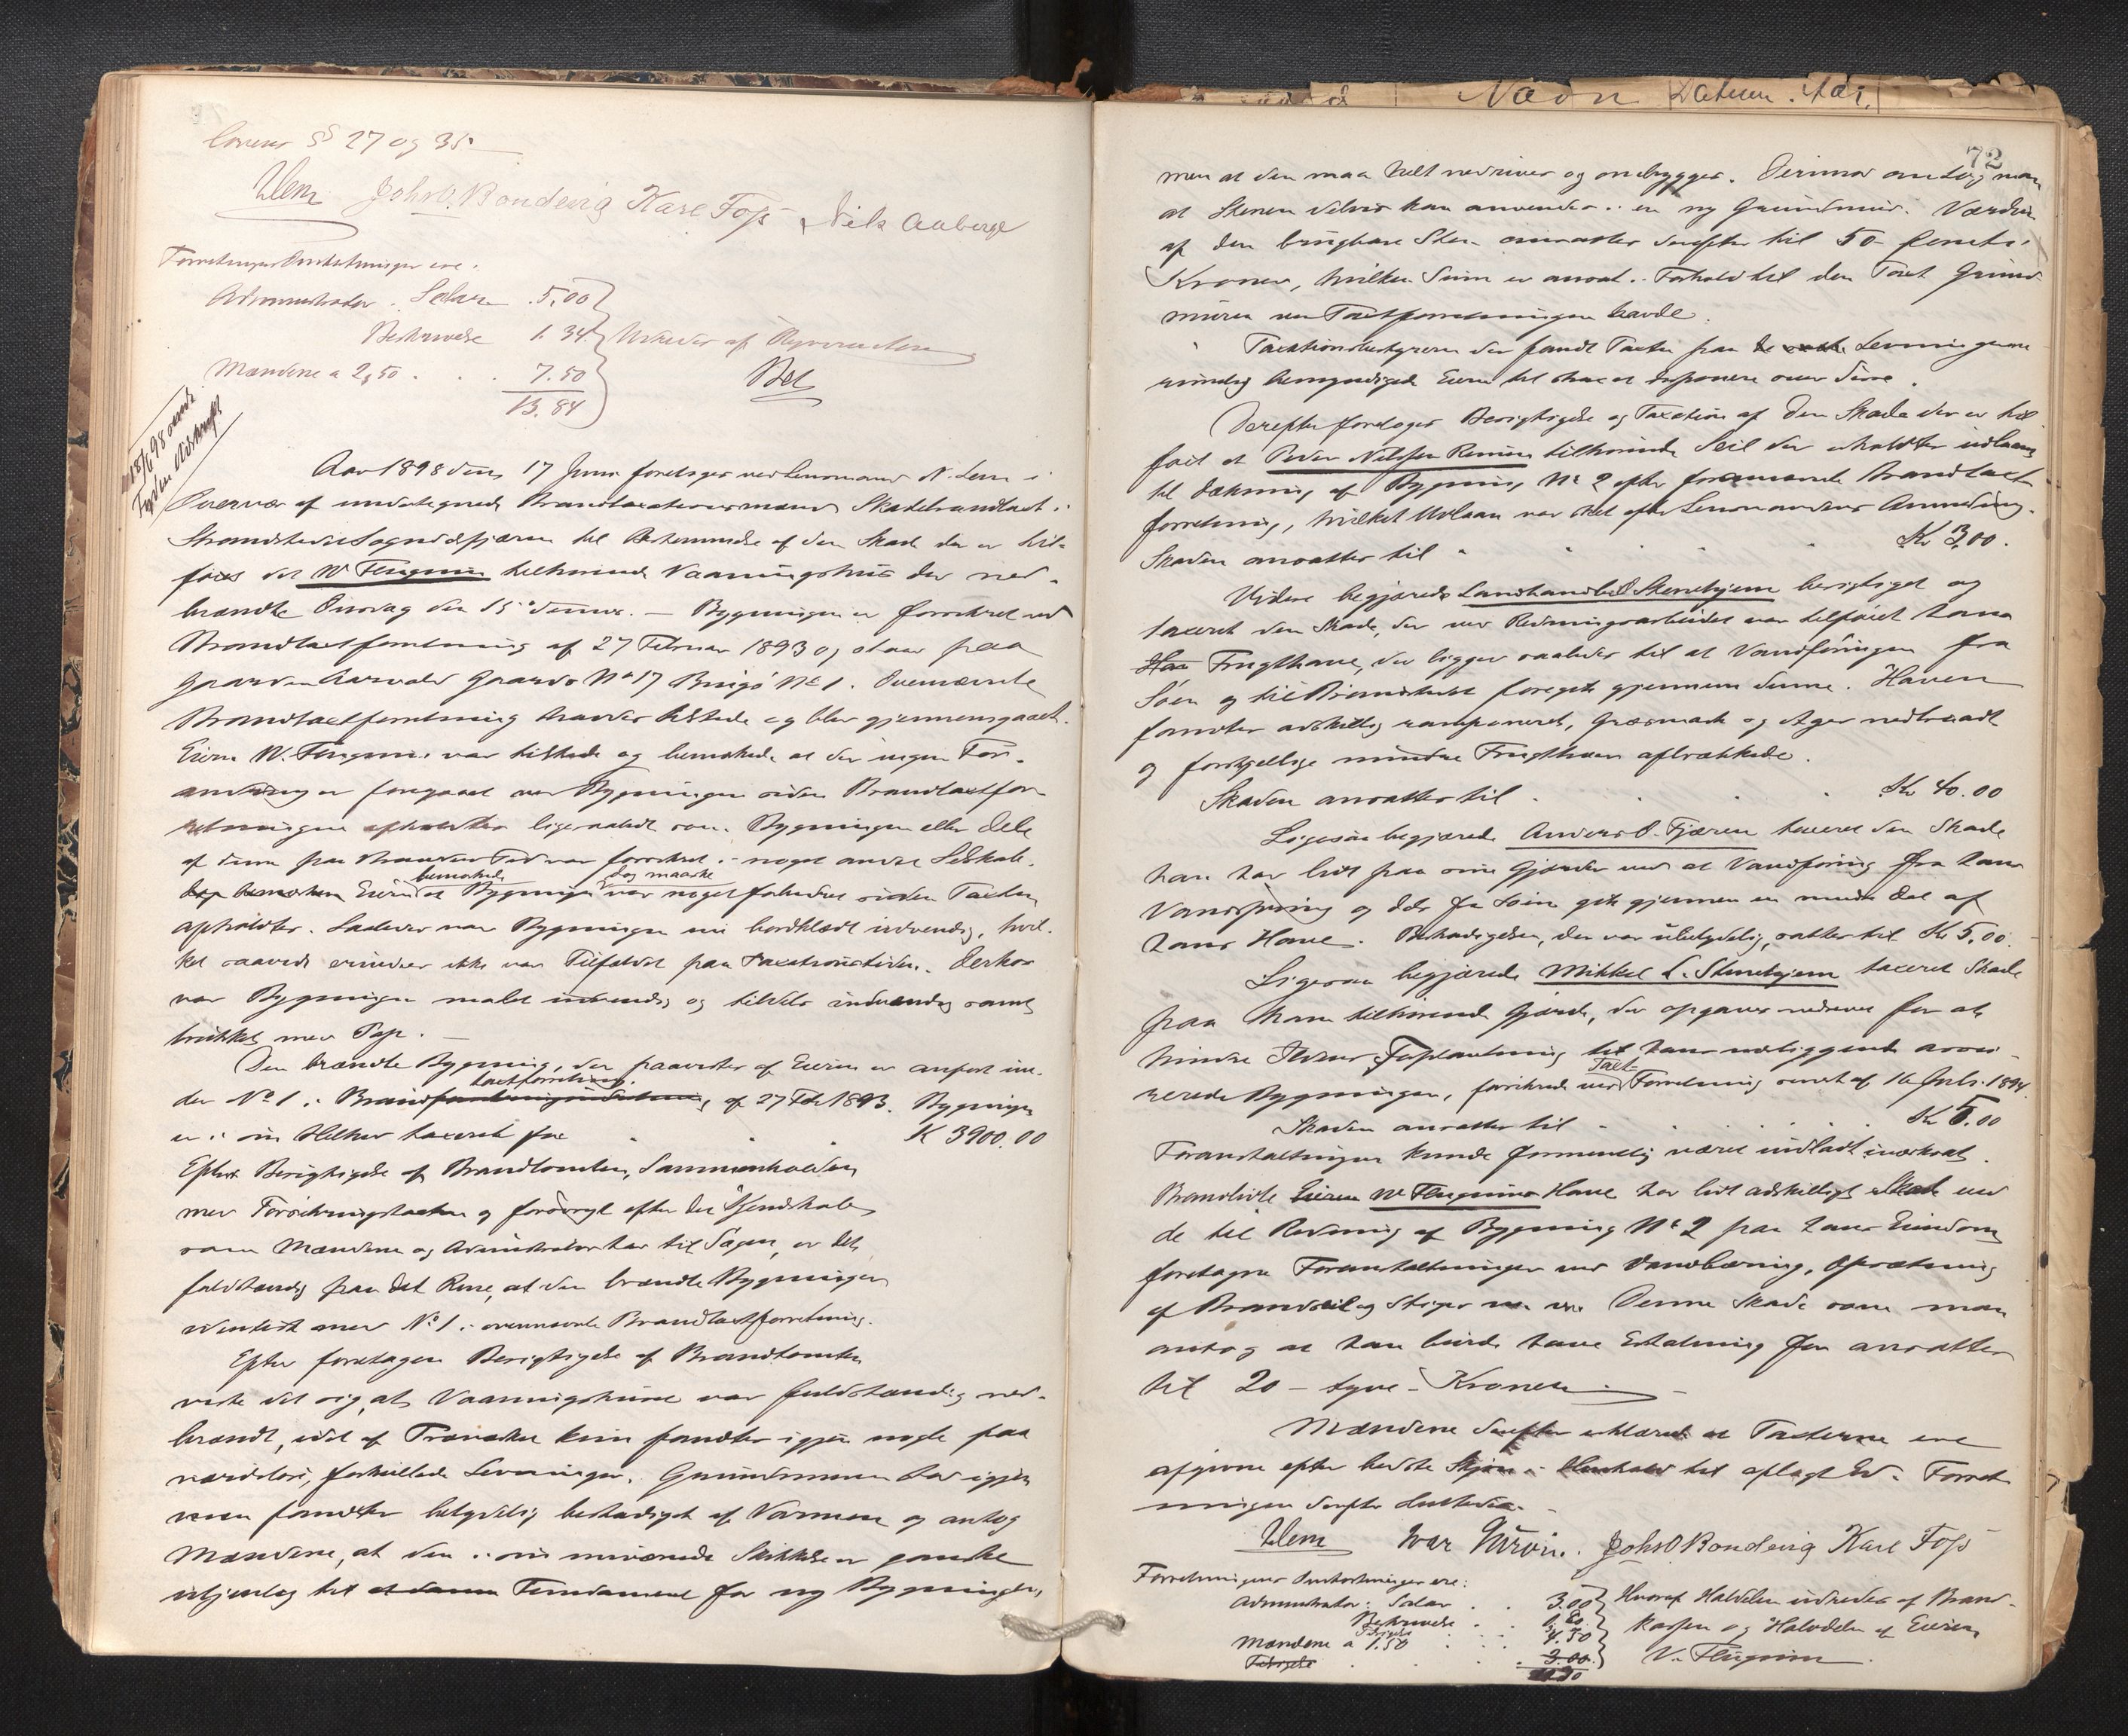 lovens §§ 27 og 35
NLem Johs O. Bondevig Karl Foss Nils Aaberge
Forretningens Omkostninger ere:
Administrator: Salær 5,00
Beskrivelse 1.34 Udredes af Rekvirenten
Mændene a 2,50 . . . 7.50 Bet
13.84
18/6 98 sendt
Aar 1898 den 17 Juni foretoges ved Lensmand N. Lem i
Overvær af undertegnede Brandtaxationsmænd Skadebrandtaxt i
Strandstedet Sogndalsfjæren til Bestemmelse af den Skade der er til-
føiet det W Flugum tilhørende Vaaningshus der ned-
brændte Onsdag den 15 dennes. — Bygningen er forsikret ved
Brandtaxtforretning af 27 Februar 1893 og staar paa
Gaarden Gaards No 17 Brugs No 1. Ovennævnte
Brandtaxtforretning havdes tilstede og blev gjennemgaaet.
Eieren W. Flugum var tilstede og bemærkede at der ingen For-
andring er foregaaet ved Bygningen siden Brandtaxtfor-
retningen afholdtes ligesaalidt som Bygningen eller Dele
af denne paa Brandens Tid var forsikret i noget andet Selskab.
bemærkede dog maaske
Eieren at Bygningen var noget forbedret siden Taxten
afholdtes. Saaledes var Bygningen nu bordklædt indvendig, hvil-
ket saavidt erindres ikke var Tilfældet paa Taxationstiden. Derhos
var Bygningen malet udvendig og tildels indvendig samt
trukket med Pap. —
Den brændte Bygning, der paavistes af Eieren er anført un-
taxtforretning
der No 1 i Brand af 27 Febr 1893. Bygningen
er i sin Helhed taxeret for . . . K 3900.00
Efter Besigtigelse af Brandtomten, Sammenholden
med Forsikringstaxten og forøvrigt efter det Kjendskab
som Mændene og Administrator har til Sagen, er det
fuldstændig paa det Rene, at den brændte Bygningen
identisk med No 1 i ovennævnte Brandtaxtforretning.
Efter foretagen Besigtigelse af Brandtomten
viste det sig, at Vaaningshuset var fuldstændig ned-
brændt, idet af Træværket kun fandtes igjen nogle faa
værdiløse, forkullede Levninger. Grundmuren der igjen
fandtes betydelig beskadiget af Varmen og antog
Mændene, at den i sin nuværende Skikkelse er ganske
utjenlig til at danne Fundament for ny Bygningen,
Navn Datum. Aar,
72
men at den maa helt nedrives og ombygges. Derimod antog man
at Stenen delvis kan anvendes i en ny Grundmur. Værdien
af den brugbare Sten ansattes derefter til 50 femti
Kroner, hvilken Sum er ansat i Forhold til den Taxt Grund-
muren ved Taxtforretningen havde.
Taxtionsbestyreren der fandt Taxten paa Levningerne
rimelig bemyndigede Eieren til strax at disponere over disse.
Derefter foretoges Besigtigelse og Taxation af den Skade der er til-
føiet et Peder Nilssen tilhørende Seil der erholdtes udlaant
til Dækning af Bygning No 2 efter foranførte Brandtaxt-
forretning, hvilket Udlaan var sket efter Lensmandens Anmodning.
Skaden ansattes til . . . . Kr 3,00.
Videre begjærede Landhandler Stenehjem besigtiget og
taxeret den Skade, der ved Redningsarbeidet var tilføiet hans
Frugthave, der ligger saaledes til at Vandføringen fra
Søen og til Brandstedet foregik gjennem denne. Haven
fandtes adskillig ramponeret, Græsmark og Ager nedtraadt
og forskjellige mindre Frugttræer afbrækkede.
Skaden ansattes til . . . . Kr 40.00
Ligesaa begjærede Anders O. Fjæren taxeret den Skade
han har lidt paa sine Gjærder ved at Vandføring fra hans
Vandspring og dels fra Søen gik gjennem en mindre Del af
hans Have. Beskadigelsen, der var ubetydelig, sattes til Kr 5,00.
Ligesaa begjærede Mikkel L. Stenehjem taxeret Skade
paa ham tilhørende Gjærde, der opgaves nedrevet for at
hindre Ildens Forplantning til hans nedliggende assu-
Taxt-
rerede Bygninger, forsikrede ved Forretning senest af 16 Juli 1894.
Skaden ansattes til . . . . Kr 5.00
Foranstaltningen kunde formentlig været undladt iværksat.
Brandlidte Eieren W Flugums Have har lidt adskilligt Skade ved
de til Redning af Bygning No 2 paa hans Eiendom
foretagne Foranstaltninger ved Vandbæring, Opsætning
af Brandseil og Stiger m. m. Denne Skade som man
antog at han burde have Erstatning for ansattes
til 20 — tyve — Kroner. —
Mændene derefter erklærede at Taxterne ere
afgivne efter bedste Skjøn i Henhold til aflagt Ed. Forret-
ningen derefter sluttedes. —
NLem Ivar Johs O Bondevig Karl Foss
Forretningens Omkostninger ere:
Administrator: Salær . . 3.00 Hvoraf Halvdelen udredes af Brand-
Beskrivelse . . 1.80 kassen og Halvdelen af Eieren
Mændene a 1.50 . . . 4.50 W. Flugum
3.00